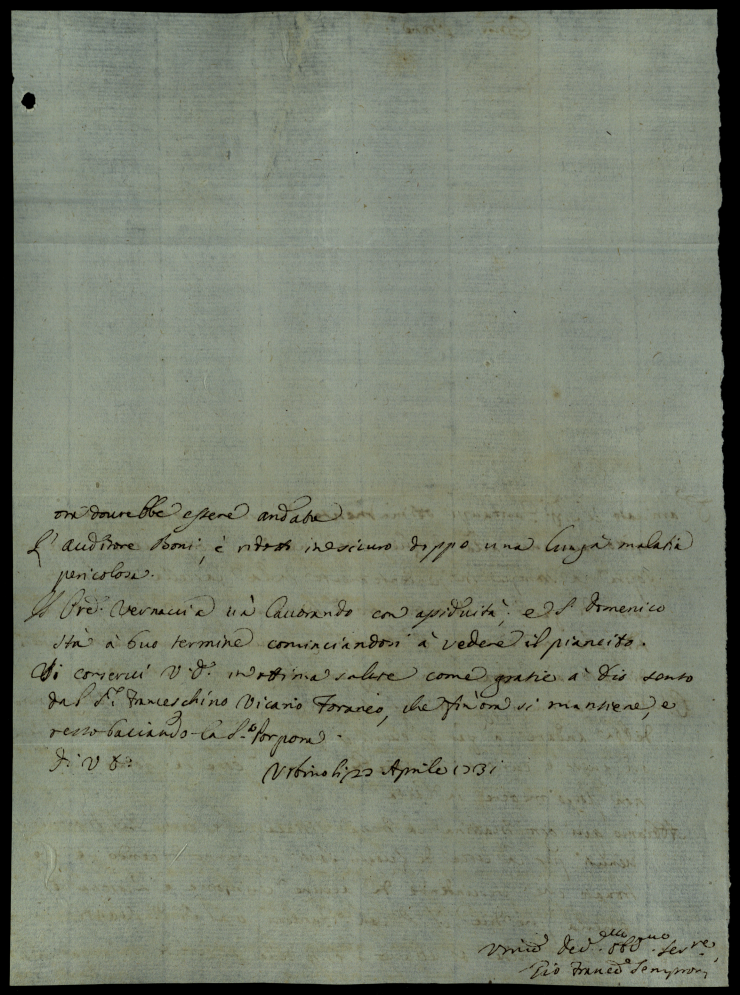 ora dourebbe essere andata
L'Auditore Boni, è ridotto in esicuro doppo una lunga malatia
pericolosa.
Il Pre. Vernaccia và lauorando con assiduità, e S. Domenico
stà à buo termine cominciandosi à vedere il piancito.
Si conserui V. E. in ottima salute come gratie à Dio sento
dal Sr. Franceschino Vicario Foraneo, che fin'ora si mantiene, e
resto baciando la S. Porpora.
Di V. E.
Vrbino li 22 Aprile 1731
Vmo Deu. Obb. Serre
Pio Franco Semproni